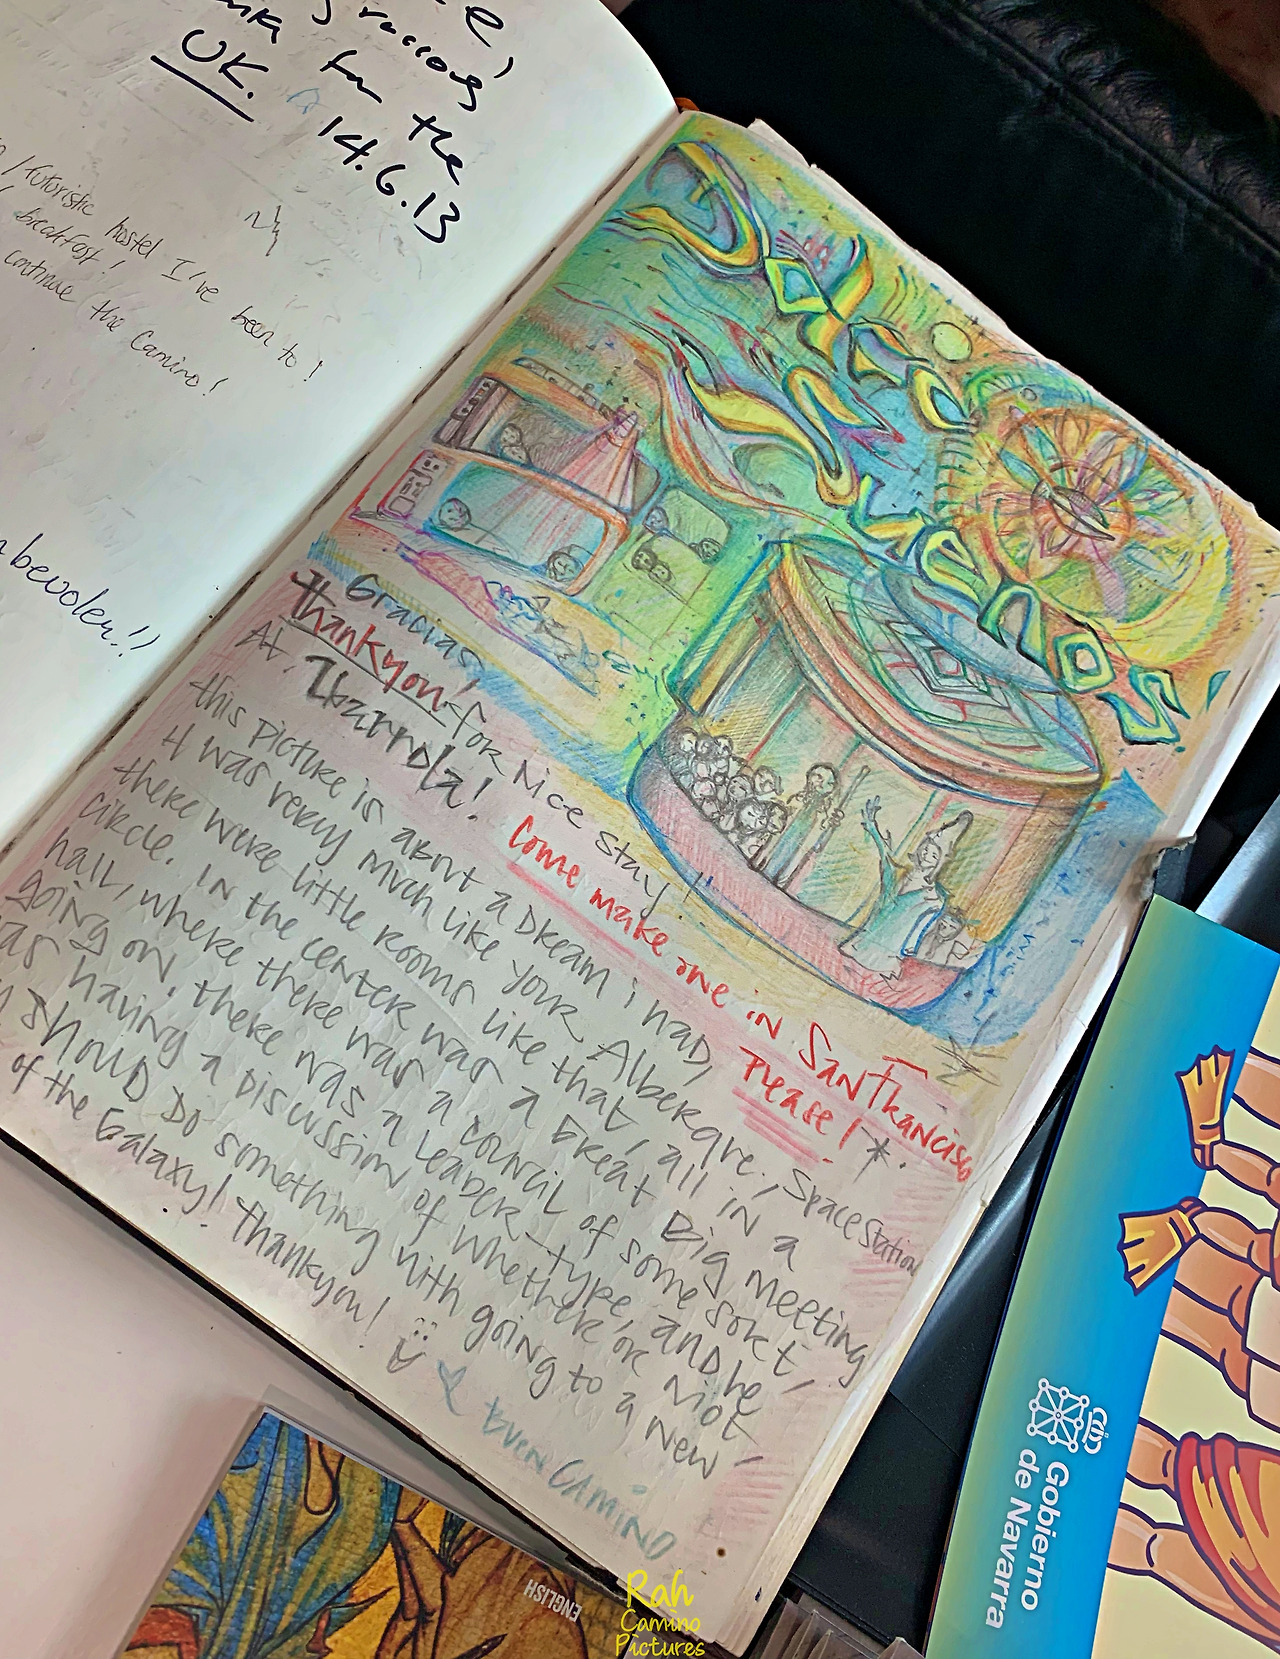 e,
Gracias
for the
UK. 14.6.13
/futuristic hostel I've been to!
breakfast!
continue the Camino!
bevolen!!
Gracias!
Thankyou! for Nice stay!!
At, Ibarrola!
Come make one in San Francisco
Please! *.
this picture is about a Dream i had,
it was very much like your Albergue, Space Station
there were little rooms like that, all in a
circle. in the center was a great big meeting
hall, where there was a council of some sort,
going on. there was a leader-type, and he
was having a discussion of whether or not
should do something with going to a new
of the Galaxy! thankyou!
Buen Camino
Gobierno
de Navarra
ENGLISH
Rah
Camino
Pictures